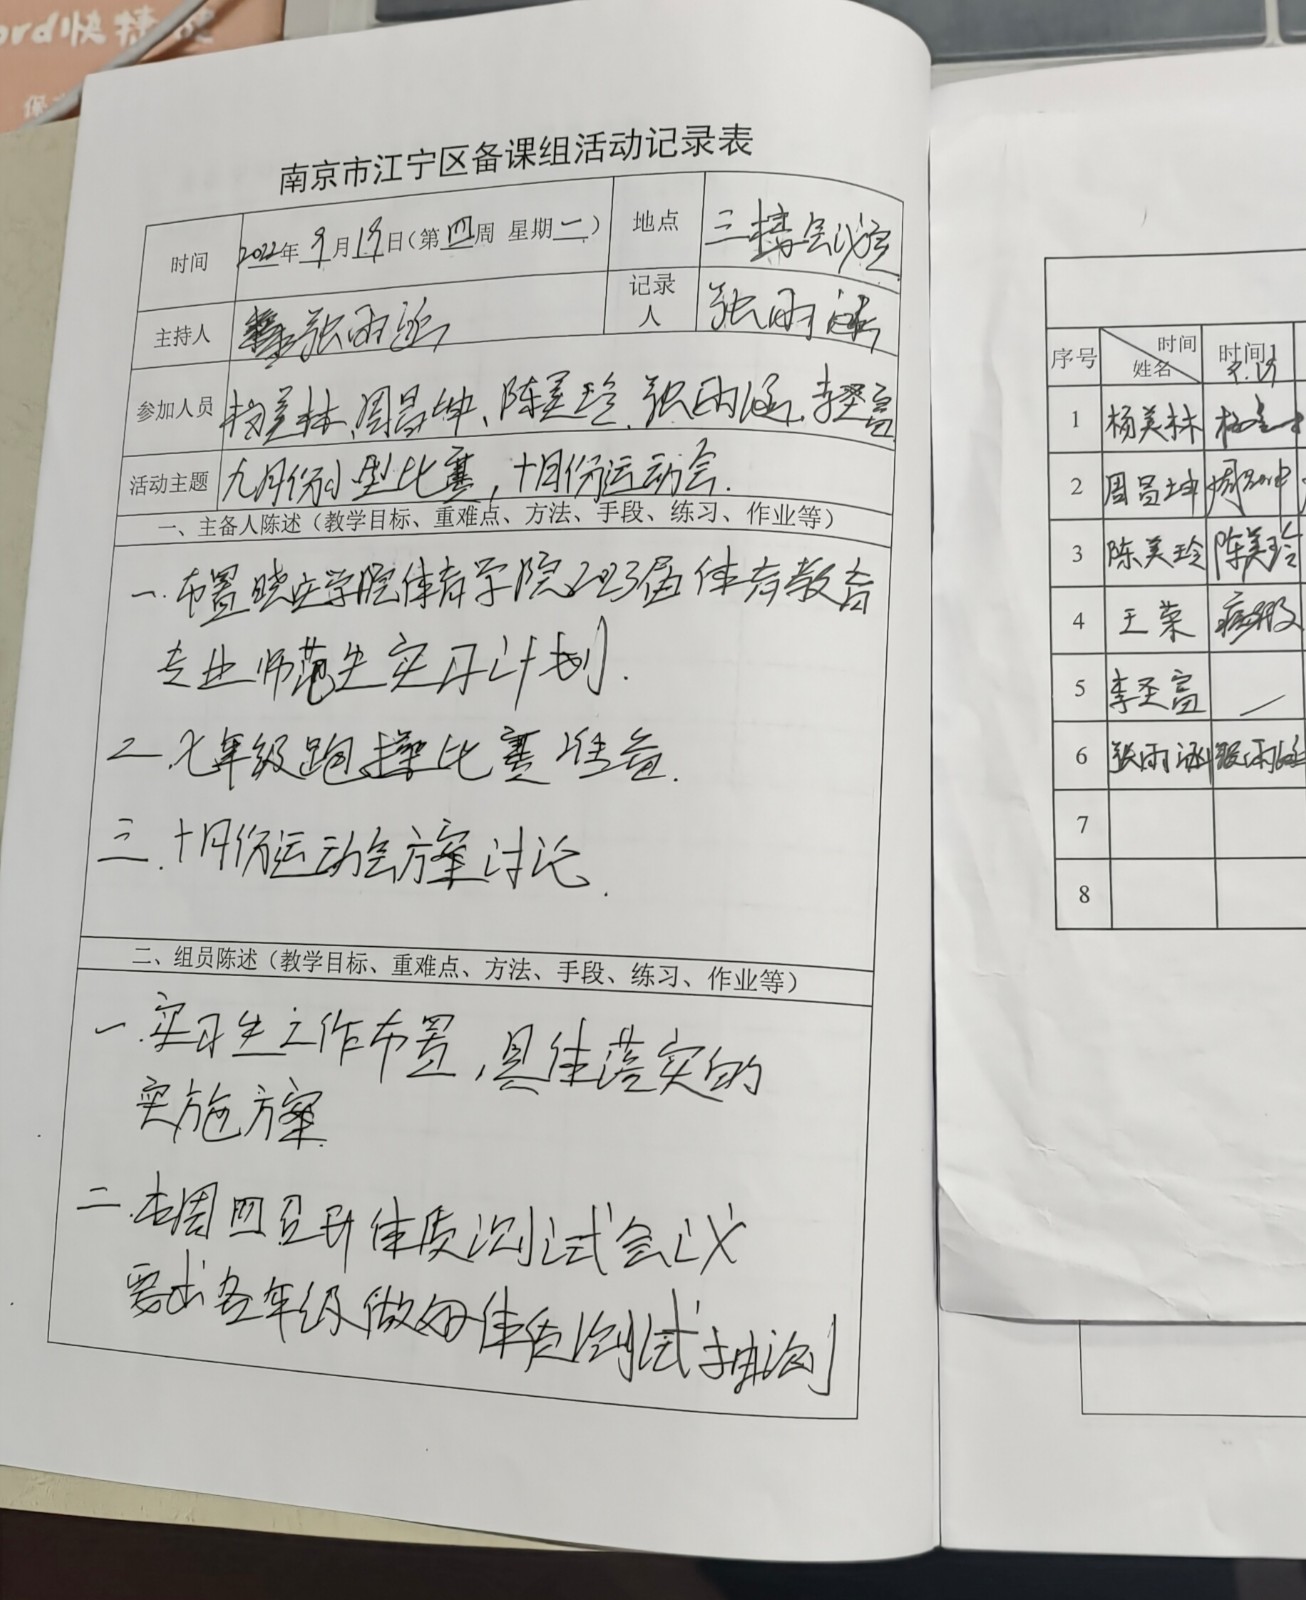 ord快捷键
南京市江宁区备课组活动记录表
时间 2022年9月19日(第四周 星期一) 地点 三楼会议室
主持人 张雨涵 记录人 张雨涵
参加人员 杨美林、周昌坤、陈美玲、张雨涵、李圣富
活动主题 九月份小型比赛，十月份运动会.
一、主备人陈述（教学目标、重难点、方法、手段、练习、作业等）
一.布置晓庄学院体育学院2023届体育教育
专业师范生实习计划.
二.七年级跑操比赛准备.
三.十月份运动会方案讨论.
二、组员陈述（教学目标、重难点、方法、手段、练习、作业等）
一.实习生工作布置，具体落实的
实施方案.
二.本周四召开体质测试会议
要求各年级做好体质测试抽测
序号 时间 姓名 时间1 9.19
1 杨美林
2 周昌坤 周昌坤
3 陈美玲 陈美玲
4 王荣 病假
5 李圣富 /
6 张雨涵 张雨涵
7
8